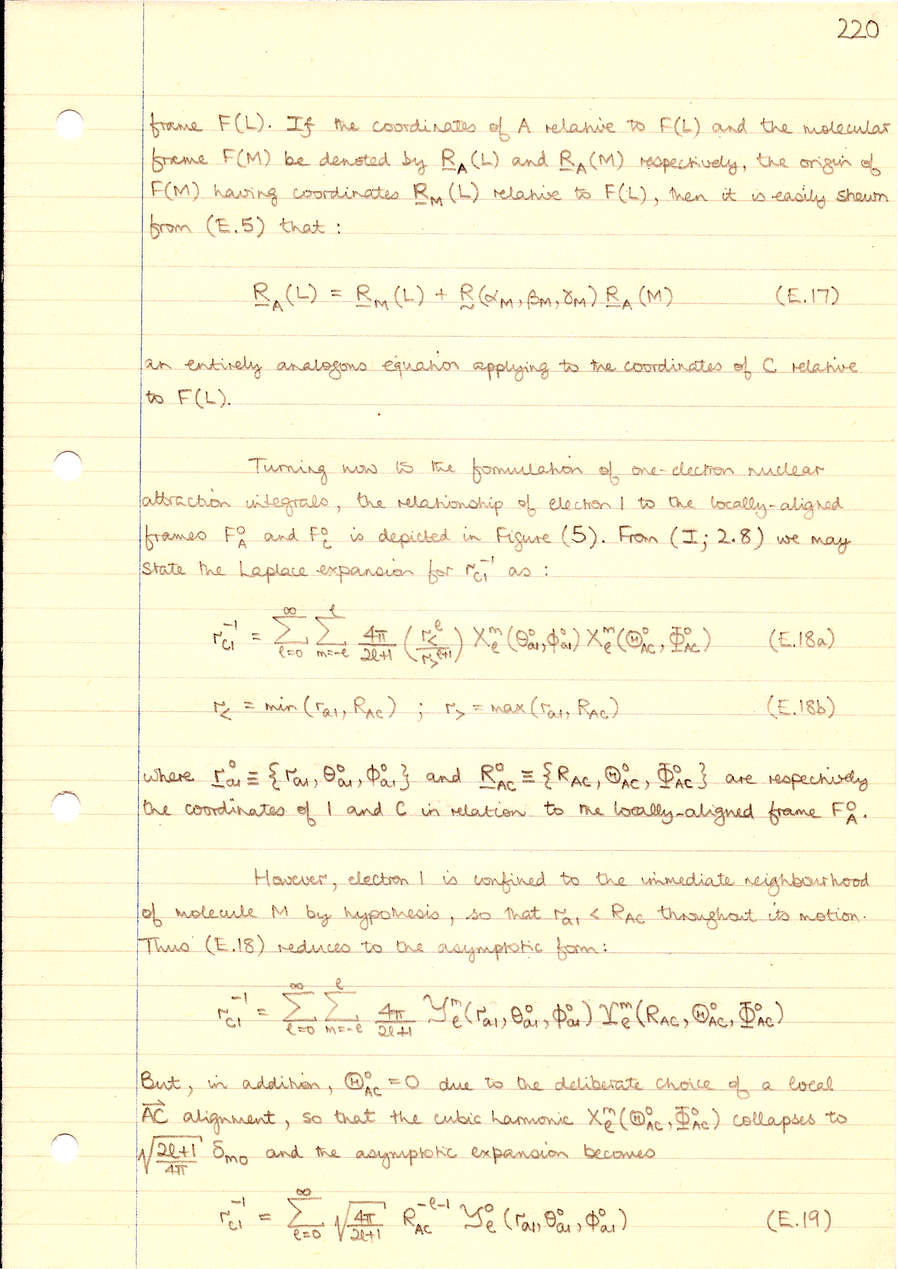 220
frame F(L). If the coordinates of A relative to F(L) and the molecular
frame F(M) be denoted by R_A(L) and R_A(M) respectively, the origin of
F(M) having coordinates R_M(L) relative to F(L), then it is easily shewn
from (E.5) that :
R_A(L) = R_M(L) + R(α_M, β_M, γ_M) R_A(M) (E.17)
an entirely analogous equation applying to the coordinates of C relative
to F(L).
Turning now to the formulation of one-electron nuclear
attraction integrals, the relationship of electron 1 to the locally-aligned
frames F_A^o and F_C^o is depicted in Figure (5). From (I; 2.8) we may
state the Laplace expansion for r_{c1}^{-1} as :
r_{c1}^{-1} = Σ_{ℓ=0}^{∞} Σ_{m=-ℓ}^{ℓ} 4π/(2ℓ+1) (r_<^ℓ / r_>^{ℓ+1}) X_ℓ^m(θ_{a1}^o, φ_{a1}^o) X_ℓ^m(Θ_{AC}^o, Φ_{AC}^o) (E.18a)
r_< = min(r_{a1}, R_{AC}) ; r_> = max(r_{a1}, R_{AC}) (E.18b)
where r_{a1}^o ≡ {r_{a1}, θ_{a1}^o, φ_{a1}^o} and R_{AC}^o ≡ {R_{AC}, Θ_{AC}^o, Φ_{AC}^o} are respectively
the coordinates of 1 and C in relation to the locally-aligned frame F_A^o.
However, electron 1 is confined to the immediate neighbourhood
of molecule M by hypothesis, so that r_{a1} < R_{AC} throughout its motion.
Thus (E.18) reduces to the asymptotic form:
r_{c1}^{-1} = Σ_{ℓ=0}^{∞} Σ_{m=-ℓ}^{ℓ} 4π/(2ℓ+1) 𝒴_ℓ^m(r_{a1}, θ_{a1}^o, φ_{a1}^o) Y_ℓ^m(R_{AC}, Θ_{AC}^o, Φ_{AC}^o)
But, in addition, Θ_{AC}^o = 0 due to the deliberate choice of a local
AC→ alignment, so that the cubic harmonic X_ℓ^m(Θ_{AC}^o, Φ_{AC}^o) collapses to
√((2ℓ+1)/4π) δ_{m0} and the asymptotic expansion becomes
r_{c1}^{-1} = Σ_{ℓ=0}^{∞} √(4π/(2ℓ+1)) R_{AC}^{-ℓ-1} 𝒴_ℓ^0(r_{a1}, θ_{a1}^o, φ_{a1}^o) (E.19)